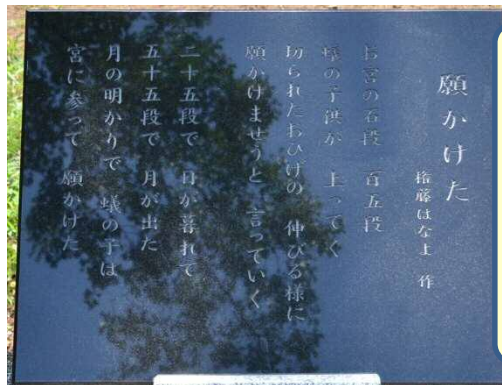 願かけた
権藤はなよ 作
お宮の石段 百五段
蟻の子供が 上ってく
切られたおひげの 伸びる様に
願かけませうと 言っていく
二十五段で 日が暮れて
五十五段で 月が出た
月の明かりで 蟻の子は
宮に参って 願かけた